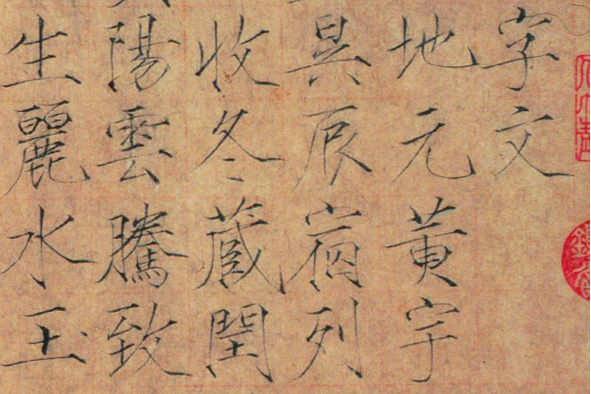 字文
地元黃宇
昃辰宿列
收冬藏閏
陽雲騰致
生麗水玉